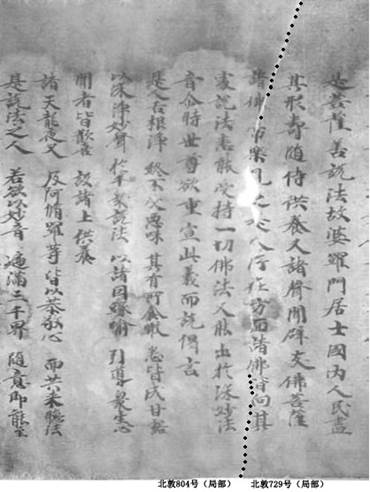 是菩薩善說法故婆羅門居士國內人民盡
其形壽隨侍供養又諸聲聞辟支佛菩薩
諸佛常樂見之是人所在方面諸佛皆向其
處說法悉能受持一切佛法又能出於深妙法
音尒時世尊欲重宣此義而說偈言
是人舌根淨 終不受惡味 其有所食噉 悉皆成甘露
以深淨妙聲 於大眾說法 以諸因緣喻 引導眾生心
聞者皆歡喜 設諸上供養
諸天龍夜叉 及阿脩羅等 皆以恭敬心 而共來聽法
是說法之人 若欲以妙音 遍滿三千界 隨意即能至
北敦804号（局部） 北敦729号（局部）